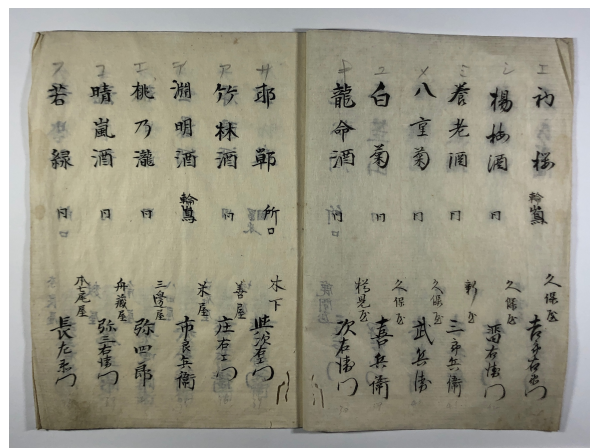 エ 初桜 輪島 久保屋
シ 楊梅酒 同 久保屋 右衛門
ミ 養老酒 同 新屋 三郎兵衛
メ 八重菊 同 久保屋 武兵衛
ユ 白菊 同 喜兵衛
キ 龍命酒 同 次右衛門
サ 邯鄲 所口 木下
ア 竹林酒 同 善屋 庄右エ門
テ 淵明酒 輪島 米屋 市良兵衛
エ 桃乃瀧 同 三邊屋 弥四郎
コ 晴嵐酒 同 舟蔵屋 弥三右衛門
フ 若緑 同 木七尾屋 長左衛門